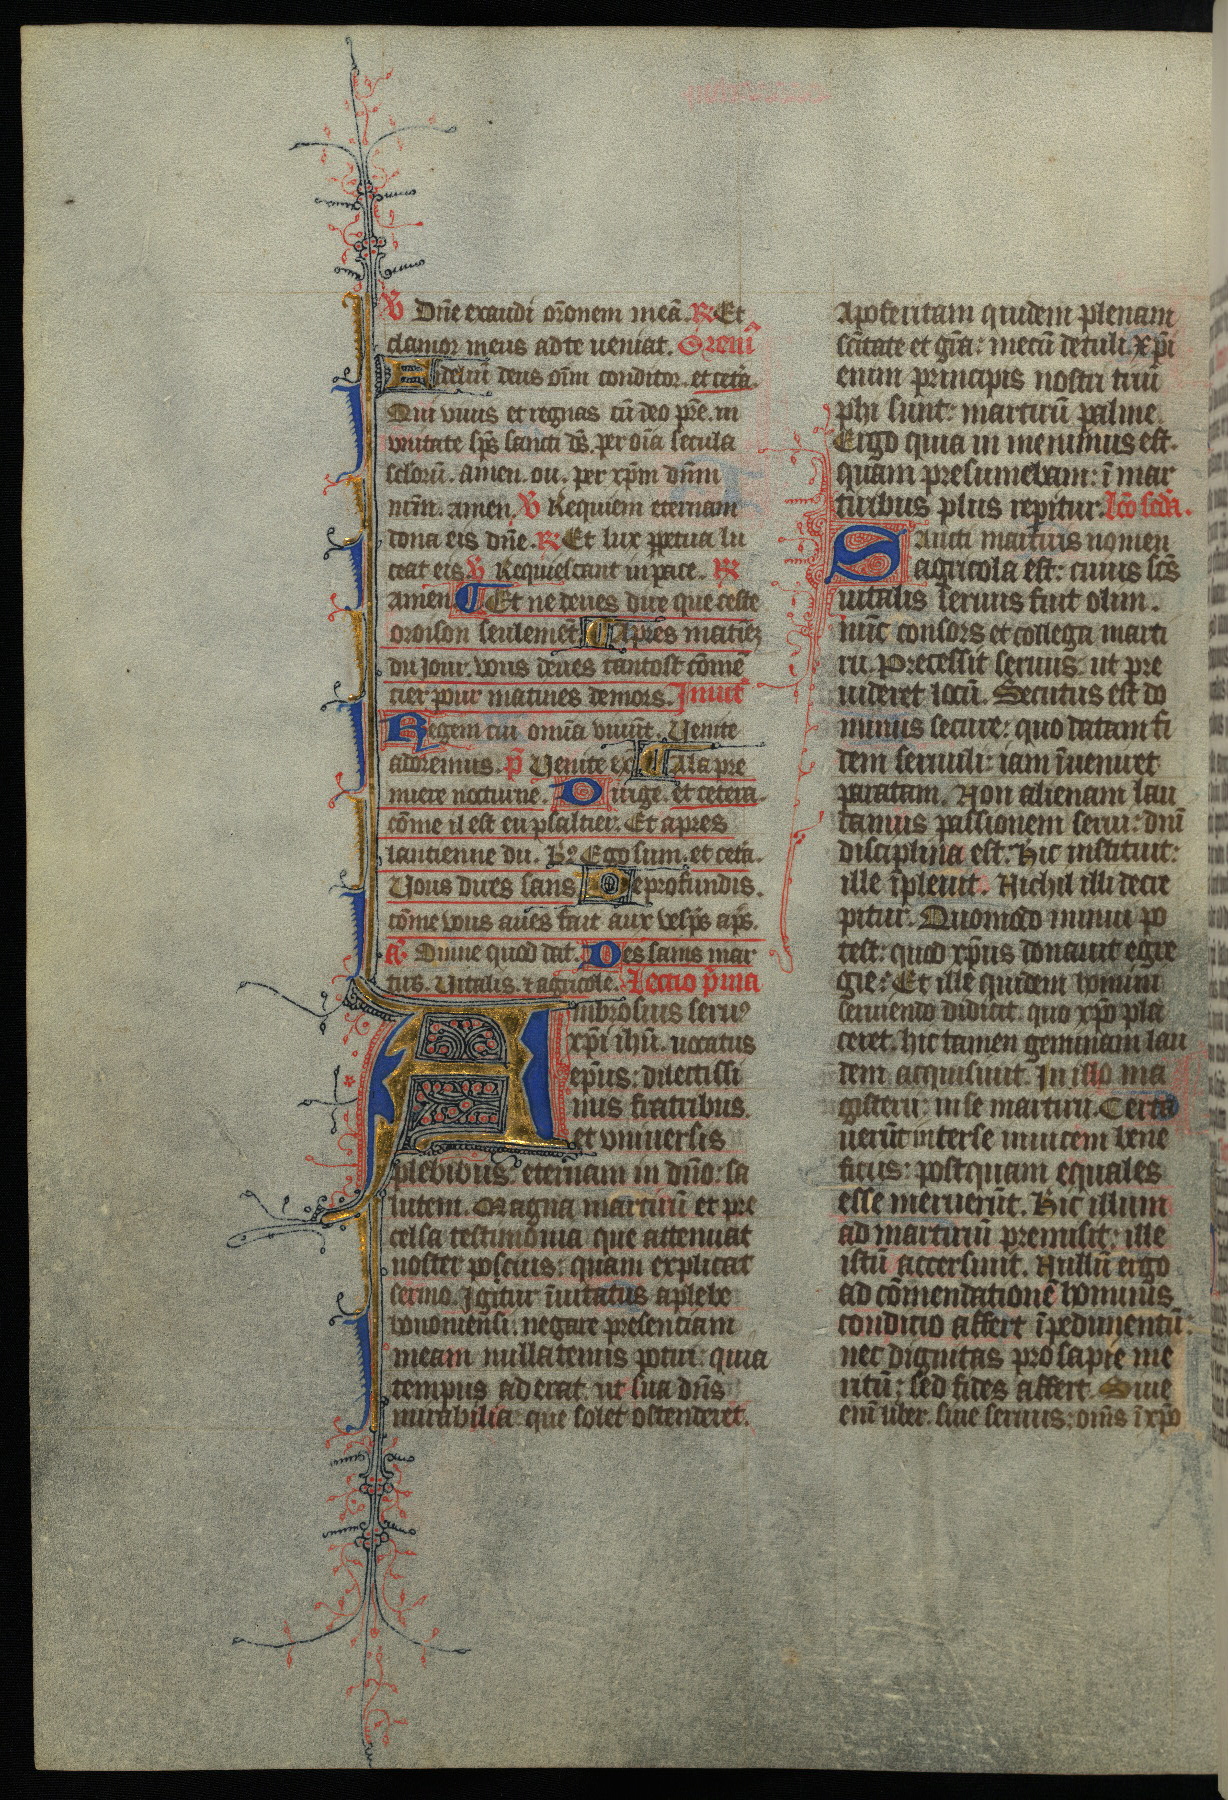 V Dn̄e exaudi or̄onem meā. R Et
clamor meus ad te ueniat. Orem̄
Fideliū deus om̄ conditor. et cetā.
Qui uiuis et regnas cū deo pr̄e. in
unitate sp̄s sancti ds̄. per oīa secula
sclorū. amen. ou. per xp̄m dn̄m
nr̄m. amen. V Requiem eternam
dona eis dn̄e. R Et lux ppetua lu
ceat eis V Requiescant in pace. R
amen Et ne deues dire que ceste
oroison seulemēt. Apres matiēz
du Jour. vous deues tantost cōmē
cier pour matines de mors. Inuit̄
Regem cui omīa uiuūt. Uenite
adoremus. p̄ Uenite ex A la pre
miere nocturne. Dirige. et cetera.
cōme il est eu psaltier. Et apres
lantienne du. Ego sum. et cetā.
Uous dires sans De profundis.
cōme vous aues fait aux uesp̄s ap̄s.
a Omne quod dat. Des sains mar
tirs. Uitalis. et agricole. Lectio p̄ma
Ambrosius seruꝰ
xp̄i ihū. uocatus
ep̄us: dilectissi
mis fratribus.
et vniuersis
plebibus: eternam in dn̄o: sa
lutem. Magna martirū et pre
celsa testimonia que attenuat
noster possuis: quam explicat
sermo. Igitur īuitatus a plebe
bononiensi. negare presentiam
meam nullatenus potui: quia
tempus aderat. ut sua dn̄s
mirabilia: que solet ostenderet.
Apoferitam quidem plenam
sc̄itate et grā: mecū detuli. xp̄i
enim principis nostri triū
phi sunt: martirū palme
Ergo quia in menimus est.
quam presumebam: ī mar
tiribus plus repitur. Lc̄o sc̄da.
Sancti martiris nomen
agricola est: cuius sc̄s
uitalis seruus fuit olim.
nūc consors et collega marti
rii. Precessit seruus. ut pre
uideret locū. Secutus est do
minus secure: quo datam fi
dem seruuli: iam īuenuet
paratam. Non alienam lau
damus passionem serui: dn̄i
disciplina est. Hic instituit:
ille īpleuit. Nichil illi decer
pitur. Quomodo minui po
test: quod xp̄us donauit egre
gie: Et ille quidem homini
seruiendo didicit. quo xp̄o pla
ceret. hic tamen geminam lau
dem acquisiuit. In illo ma
gisterii: in se martirii. Certa
uerūt inter se inuicem bene
ficiis: postquam equales
esse meruerūt. Hic illum
ad martiriū premisit: ille
istū accersiuit. Nullū ergo
ad cōmendationē hominis
conditio affert īpedimentū:
nec dignitas prosapie me
ritū: sed fides affert. Siue
enī liber. siue seruus: om̄s ī xp̄o